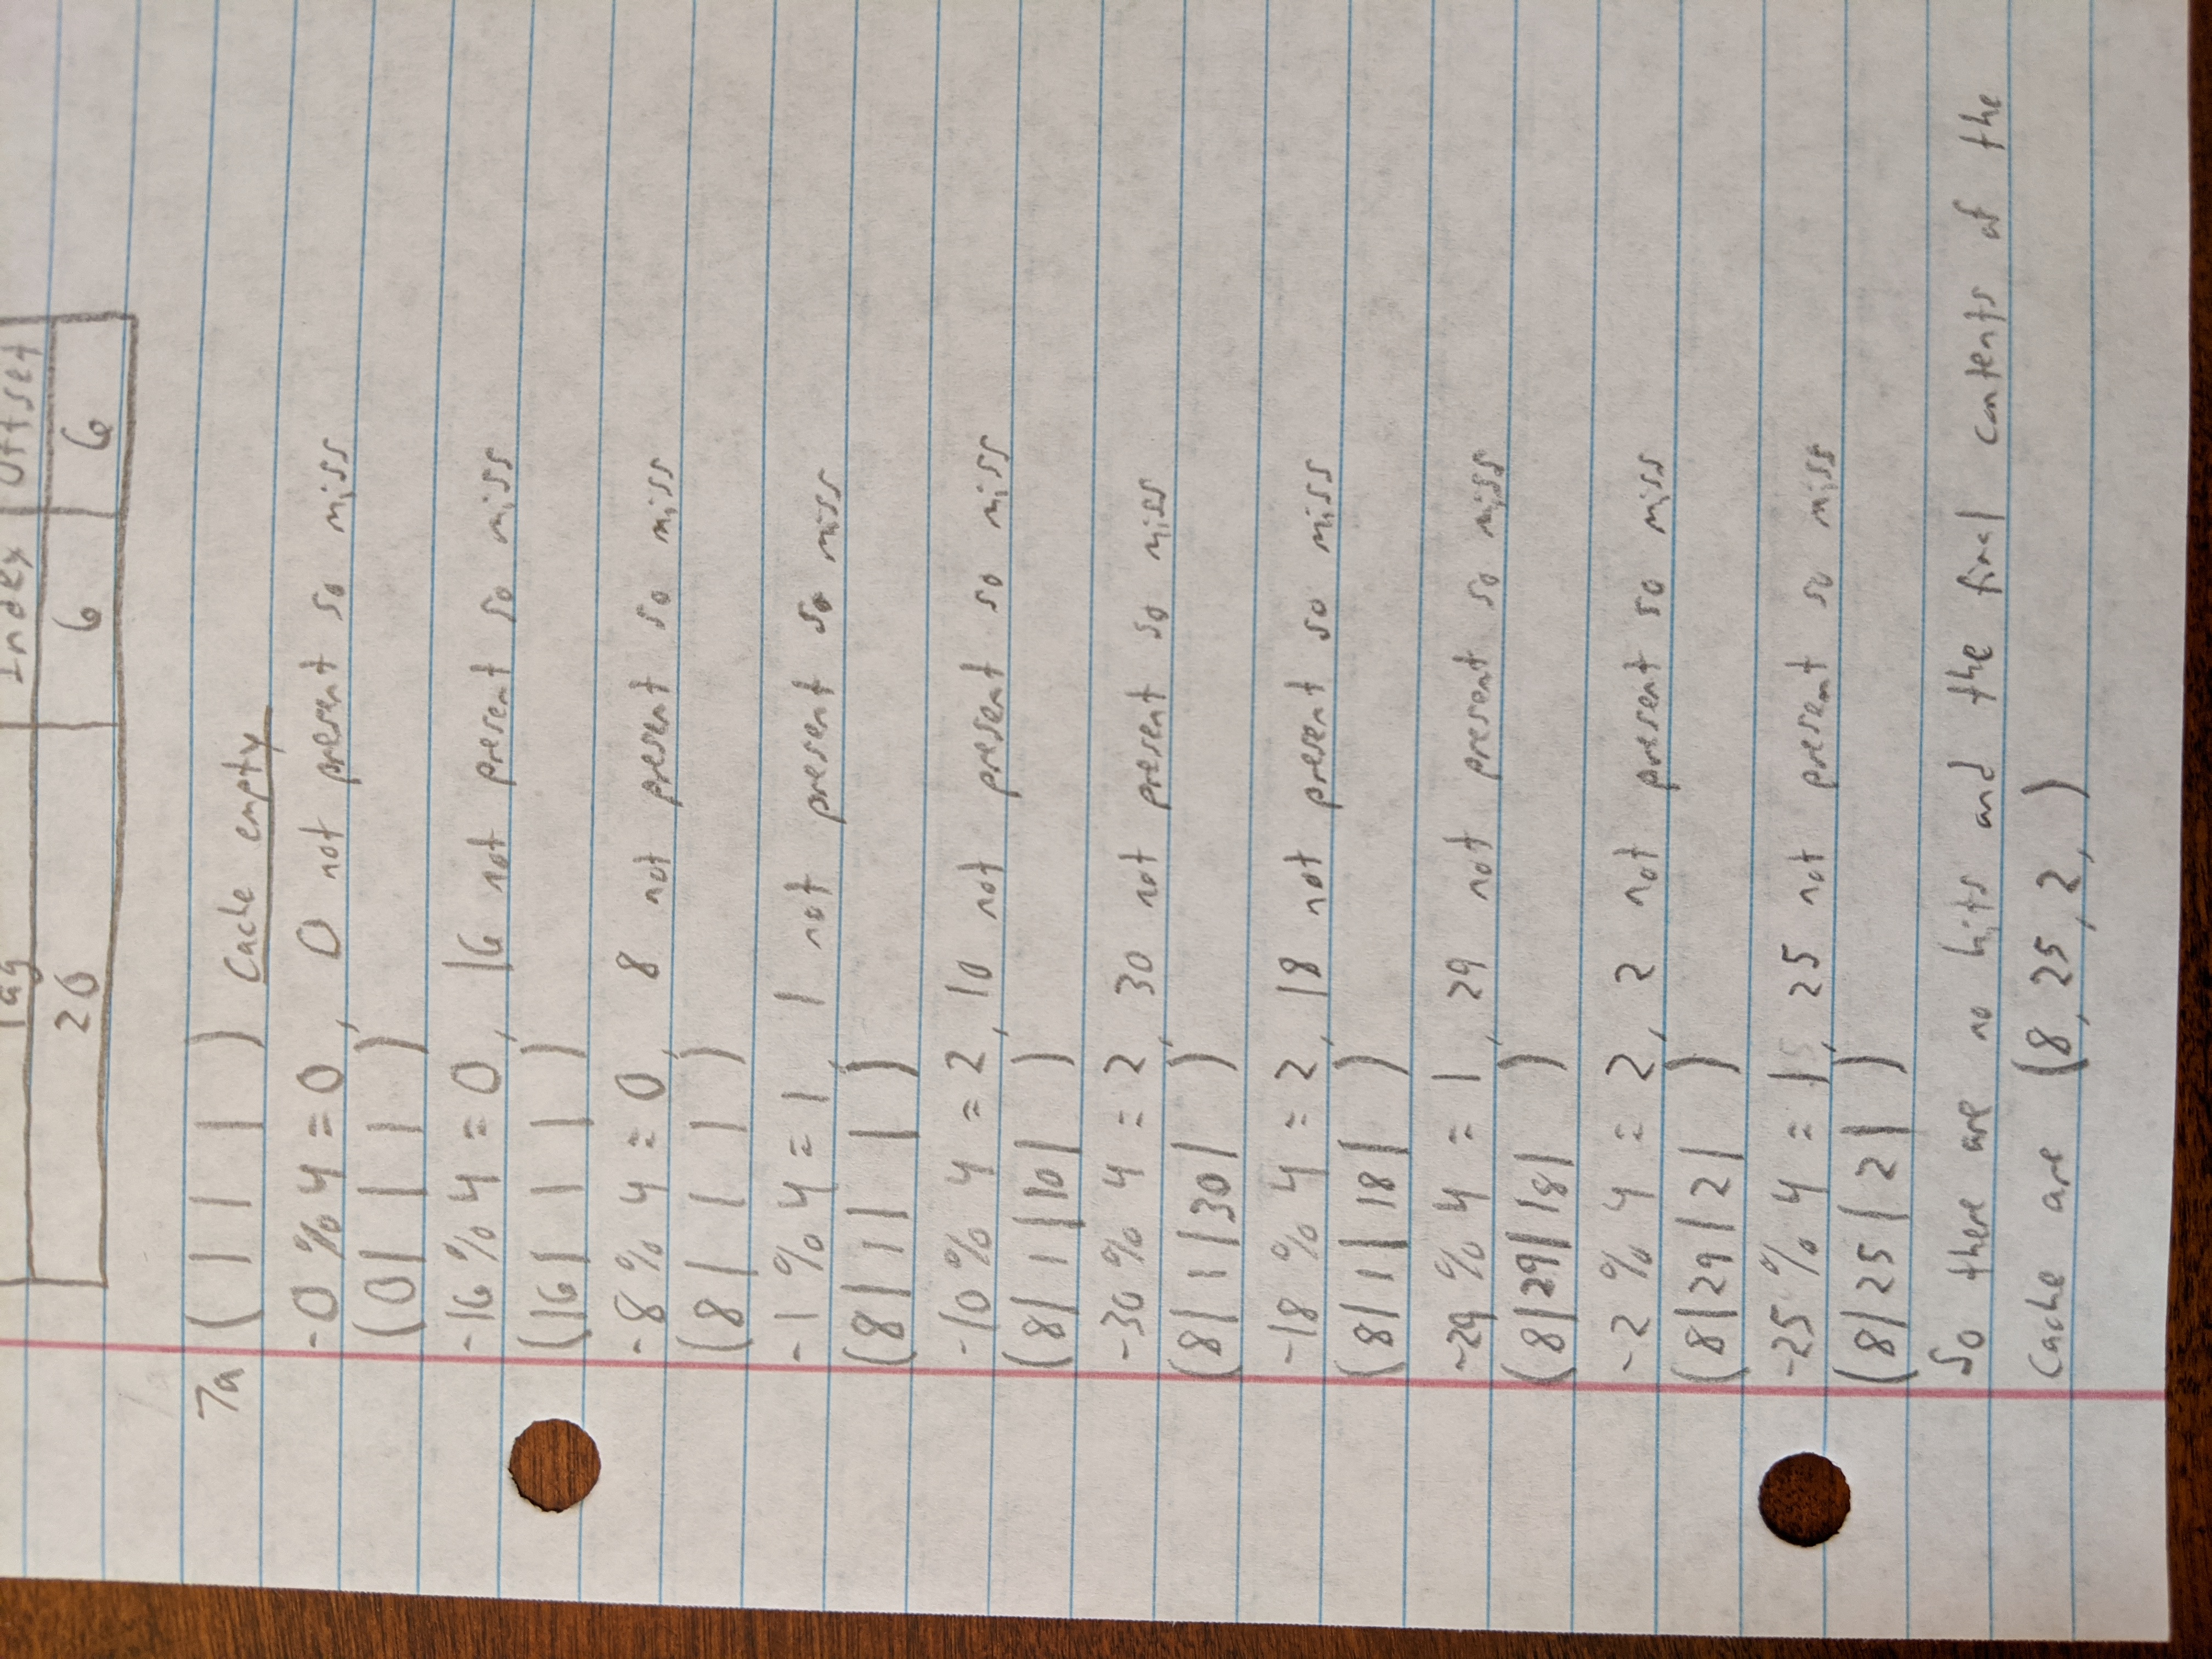 Tag Index Offset
20 6 6
7a ( | | | ) Cache empty
-0 % 4 = 0, 0 not present so miss
(0| | | )
-16 % 4 = 0, 16 not present so miss
(16| | | )
-8 % 4 = 0, 8 not present so miss
(8| | | )
-1 % 4 = 1, 1 not present so miss
(8| 1| | )
-10 % 4 = 2, 10 not present so miss
(8| 1 |10| )
-30 % 4 = 2, 30 not present so miss
(8| 1 |30| )
-18 % 4 = 2, 18 not present so miss
(8| 1 | 18| )
-29 % 4 = 1, 29 not present so miss
(8|29| 18| )
-2 % 4 = 2, 2 not present so miss
(8|29| 2| )
-25 % 4 = 1, 25 not present so miss
(8|25| 2| )
So there are no hits and the final contents of the
Cache are (8, 25, 2, )